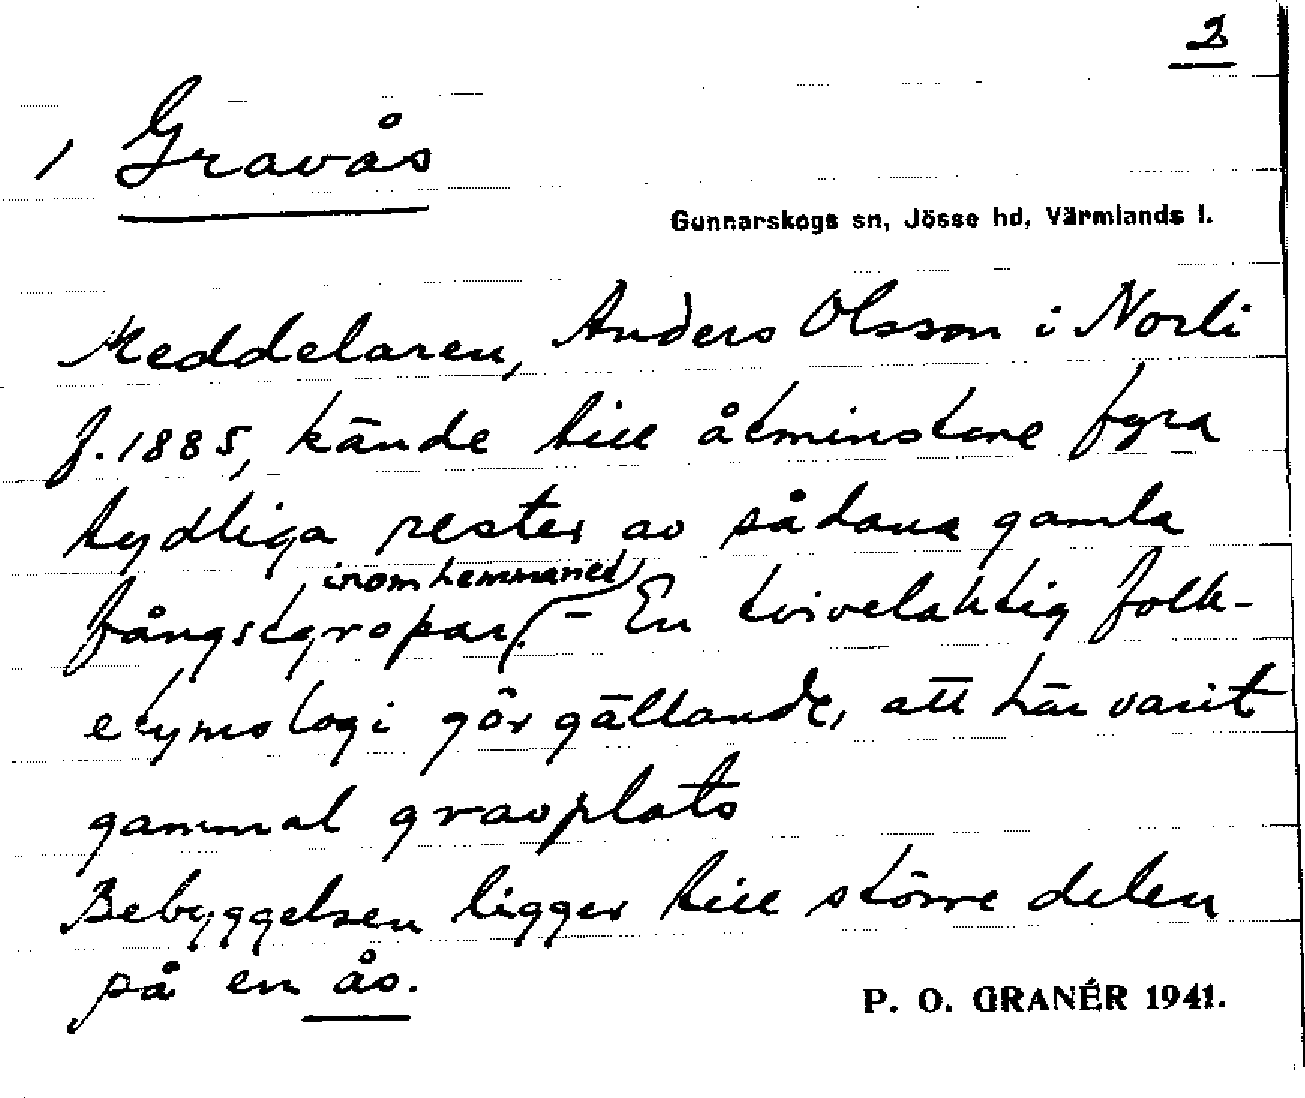 2
/ Gravås
Gunnarskogs sn, Jösse hd, Värmlands l.
Meddelaren, Anders Olsson i Norli
f. 1885, kände till åtminstone fyra
tydliga rester av sådana gamla
inom hemmanet
fångstgropar. – En tvivelaktig folk-
etymologi gör gällande, att här varit
gammal gravplats
Bebyggelsen ligger till större delen
på en ås.
P. O. GRANÉR 1941.